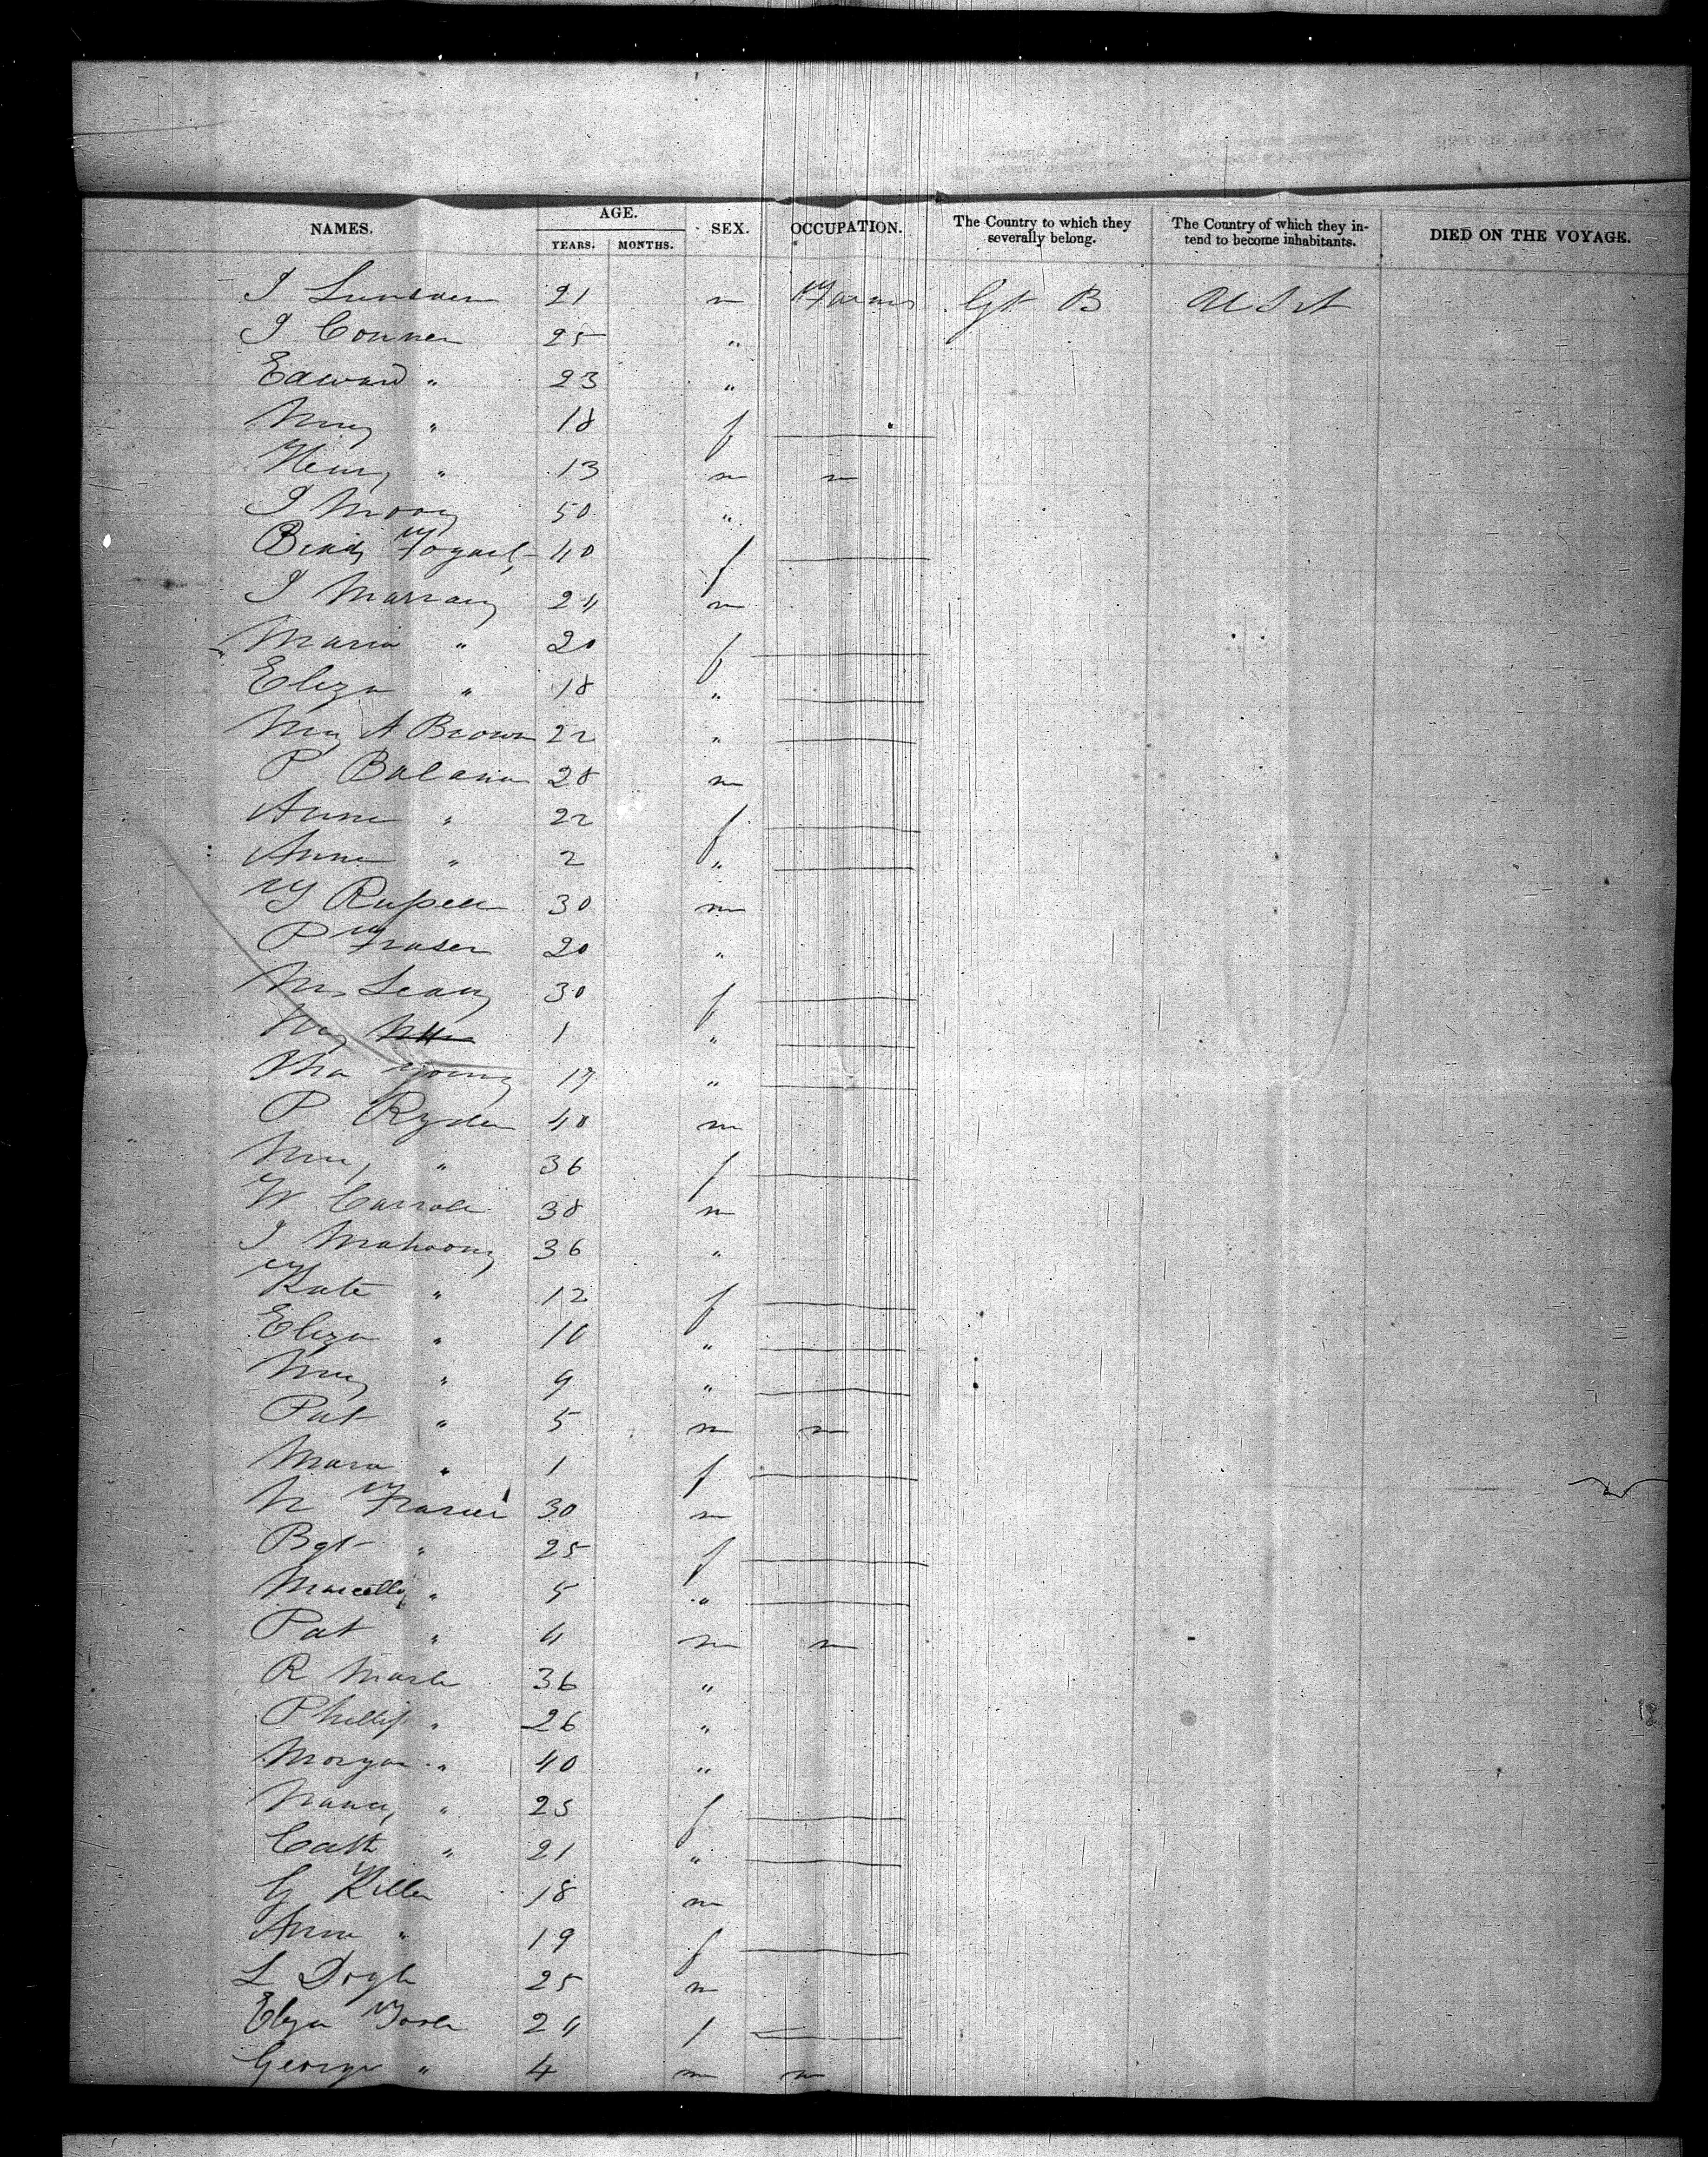 NAMES. AGE. YEARS. MONTHS. SEX. OCCUPATION. The Country to which they severally belong. The Country of which they intend to become inhabitants. DIED ON THE VOYAGE.
J 21 m Farmer Gt B U S A
J Conner 25 "
Edward " 23 "
Mary " 18 f
Henry " 13 m
J 50 "
40 f
J Murray 24 m
Maria " 20 f
Eliza " 18 "
Mary A Brown 22 "
P 28 m
Anne " 22 f
Anne " 2 "
Russell 30 m
P Fraser 20 "
Mrs Leary 30 f
Mary 1 "
Young 17 "
P Ryder 40 m
Mary " 36 f
W Carroll 38 m
J Mahoony 36 "
Kate " 12 f
Eliza " 10 "
Mary " 9 "
Pat " 5 m
Mara " 1 f
Frasier 30 m
Bgt " 25 f
Marcella " 5 "
Pat " 4 m
R 36 "
Phillip " 26 "
Morgan " 40 "
Nancy " 25 f
Cath " 21 "
G 18 m
Anna " 19 f
L Doyle 25 m
Eliza 24 f
George " 4 m